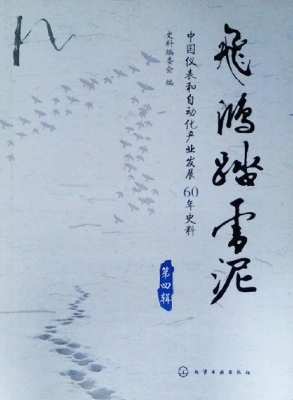 飛鴻踏雪泥
中国仪表和自动化产业发展60年史料
史料编委会 编
第四辑
化学工业出版社